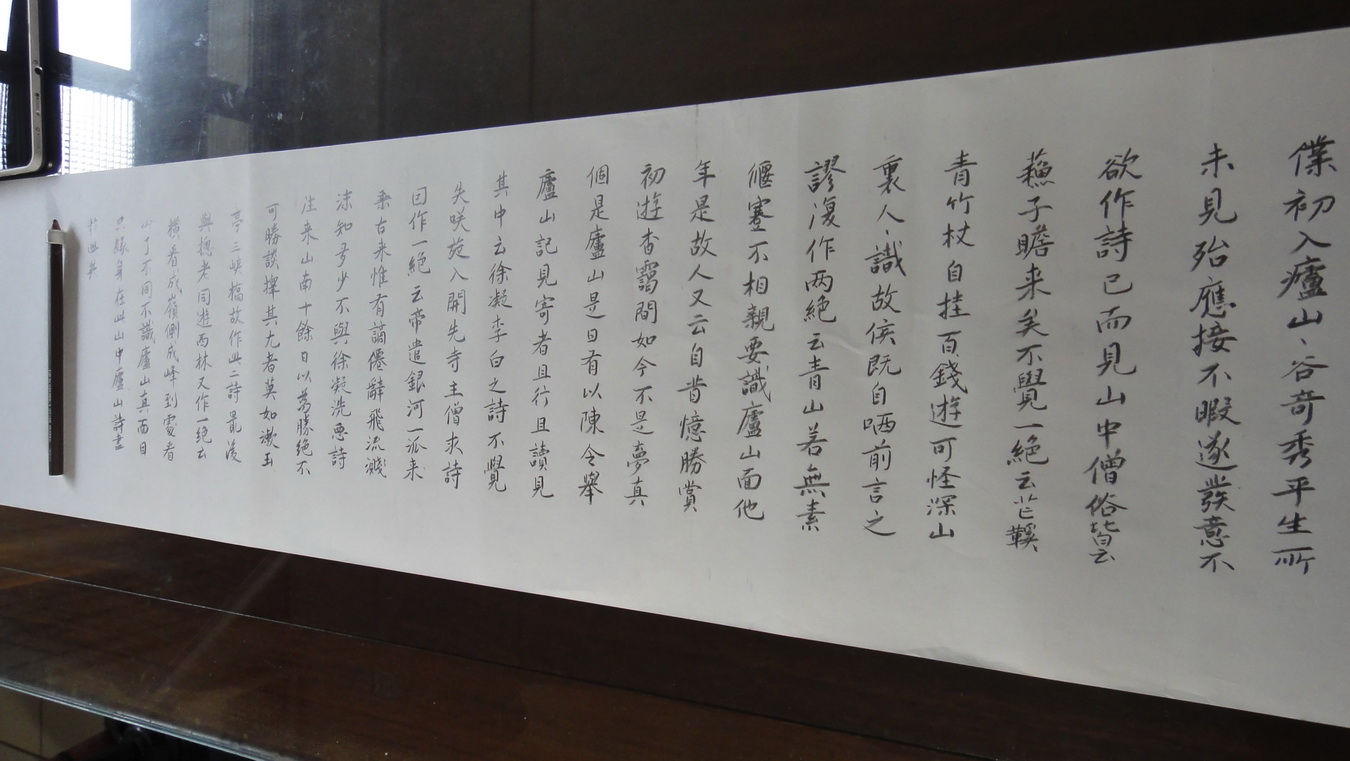 僕初入廬山、谷奇秀平生所
未見殆應接不暇遂發意不
欲作詩已而見山中僧俗皆云
蘓子瞻来矣不覺一絕云芒鞵
青竹杖自挂百錢遊可怪深山
裏人、識故侯既自哂前言之
謬復作两絕云青山若無素
偃蹇不相親要識廬山面他
年是故人又云自昔憶勝賞
初遊杳靄間如今不是夢真
個是廬山是日有以陳令舉
廬山記見寄者且行且讀見
其中云徐凝李白之詩不覺
失咲旋入開先寺主僧求詩
因作一絕云帝遣銀河一派来
垂古来惟有謫僊辭飛流濺
沫知多少不與徐凝洗惡詩
往来山南十餘日以為勝絕不
可勝談擇其尤者莫如漱玉
亭三峽橋故作此二詩最後
與摠老同遊西林又作一絕云
橫看成嶺側成峰到處看
山了不同不識廬山真面目
只緣身在此山中廬山詩盡
於此矣